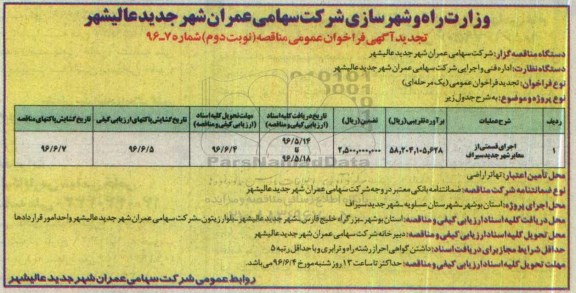 وزارت راه و شهر سازی شرکت سهامی عمران شهر جدید عالیشهر
تجدید آگهی فراخوان عمومی مناقصه (نوبت دوم) شماره ۷-۹۶
دستگاه مناقصه گزار: شرکت سهامی عمران شهر جدید عالیشهر
دستگاه نظارت: اداره فنی و اجرایی شرکت سهامی عمران شهر جدید عالیشهر
نوع فراخوان: تجدید فراخوان عمومی (یک مرحله ای)
نوع پروژه و موضوع: به شرح جدول زیر
ردیف شرح عملیات برآورد تقریبی (ریال) تضمین (ریال) تاریخ دریافت کلیه اسناد (ارزیابی کیفی و مناقصه) مهلت تحویل کلیه اسناد (ارزیابی کیفی و مناقصه) تاریخ گشایش پاکتهای ارزیابی کیفی تاریخ گشایش پاکتهای مناقصه
۱ اجرای قسمتی از معابر شهر جدید سیراف ۵۸,۲۰۴,۱۰۵,۶۲۸ ۲,۵۰۰,۰۰۰,۰۰۰ ۹۶/۵/۱۴ تا ۹۶/۵/۱۸ ۹۶/۶/۴ ۹۶/۶/۵ ۹۶/۶/۷
محل تأمین اعتبار: تهاتر اراضی
نوع ضمانتنامه شرکت مناقصه: ضمانتنامه بانکی معتبر در وجه شرکت سهامی عمران شهر جدید عالیشهر
محل اجرای پروژه: استان بوشهر ـ شهرستان عسلویه ـ شهر جدید سیراف
محل دریافت کلیه اسناد ارزیابی کیفی و مناقصه: استان بوشهر ـ بزرگراه خلیج فارس ـ شهر جدید عالیشهر ـ بلوار زیتون ـ شرکت سهامی عمران شهر جدید عالیشهر واحد امور قراردادها
محل تحویل کلیه اسناد ارزیابی کیفی و مناقصه: دبیرخانه شرکت سهامی عمران شهر جدید عالیشهر
حداقل شرایط مجاز برای دریافت اسناد: داشتن گواهی احراز رشته راه و ترابری و با حداقل رتبه ۵
مهلت تحویل کلیه اسناد ارزیابی کیفی و مناقصه: حداکثر تا ساعت ۱۳ روز شنبه مورخ ۹۶/۶/۴ می باشد.
روابط عمومی شرکت سهامی عمران شهر جدید عالیشهر